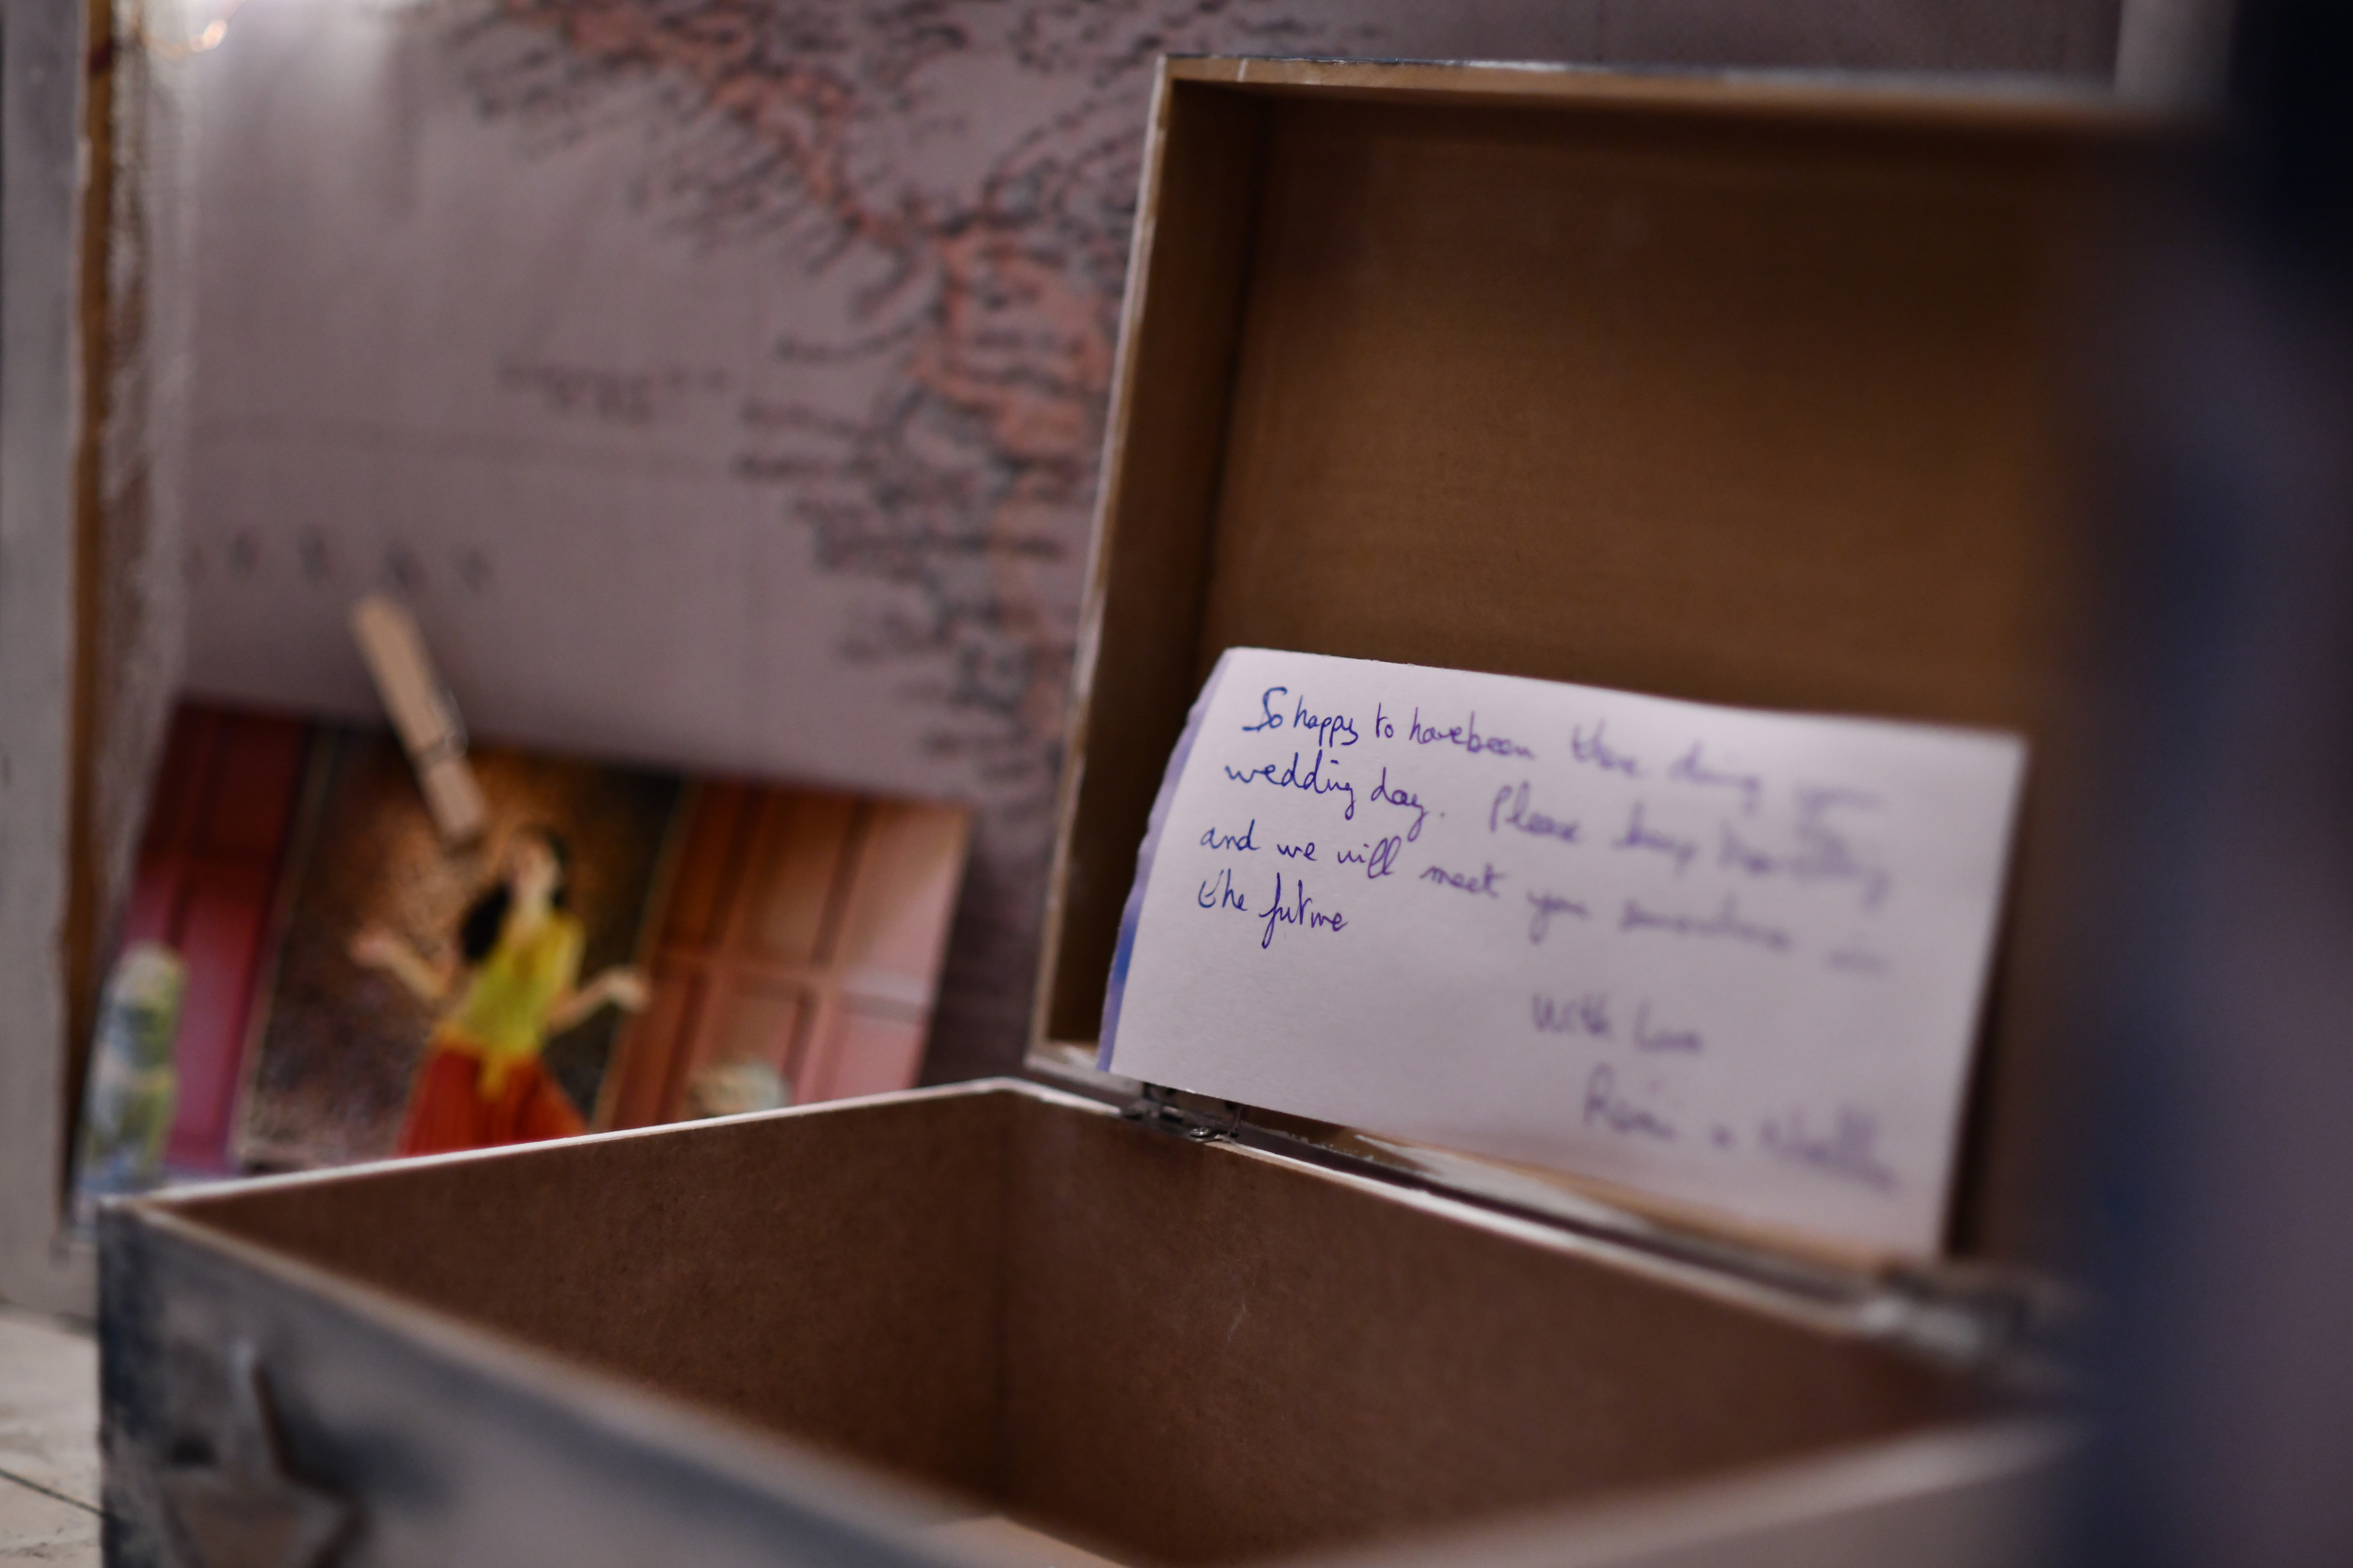 So happy to have been there during your
wedding day. Please keep travelling
and we will meet you sometime in
the future
With Love